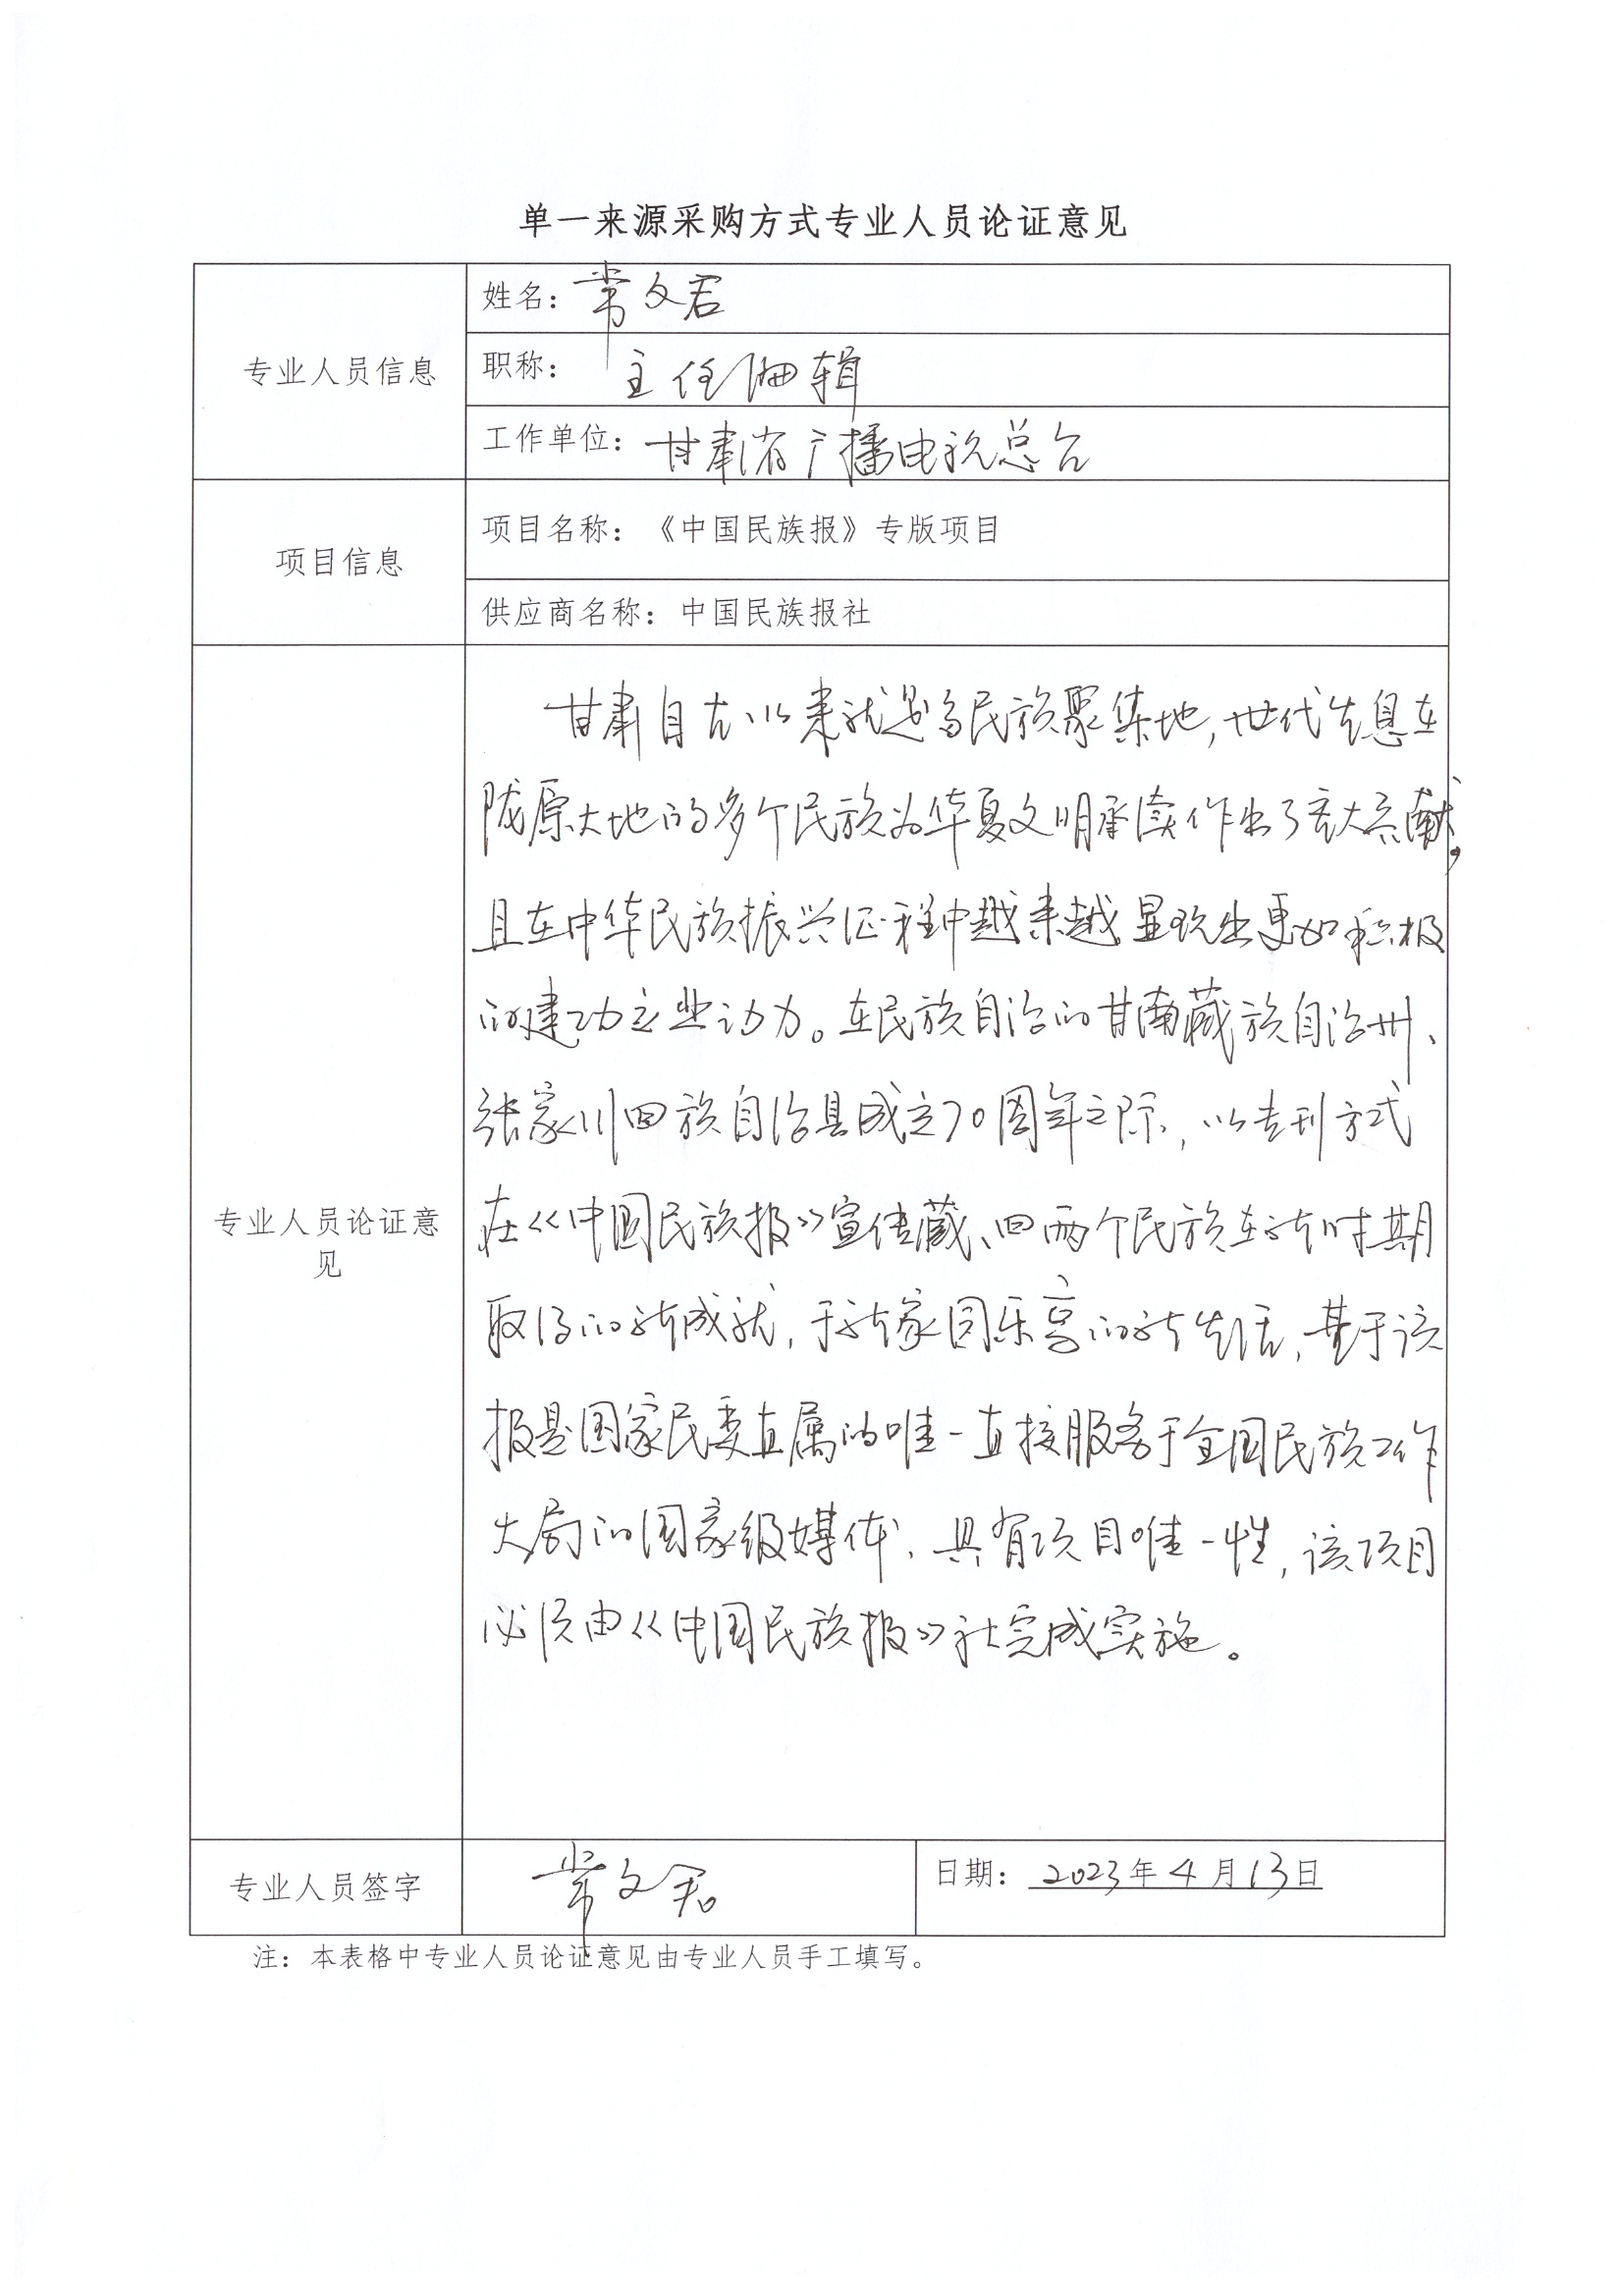 单一来源采购方式专业人员论证意见
专业人员信息
姓名：常文君
职称：主任编辑
工作单位：甘肃省广播电视总台
项目信息
项目名称：《中国民族报》专版项目
供应商名称：中国民族报社
专业人员论证意
见
甘肃自古以来就是多民族聚集地，世代生息在
陇原大地的多个民族为华夏文明承续作出了重大贡献，
且在中华民族振兴征程中越来越显现出更加积极
的建功立业动力。在民族自治的甘南藏族自治州、
张家川回族自治县成立70周年之际，以专刊方式
在《中国民族报》宣传藏、回两个民族在新时期
取得的新成就，于大家同乐享的新生活，基于该
报是国家民委直属的唯一直接服务于全国民族工作
大局的国家级媒体，具有项目唯一性，该项目
必须由《中国民族报》社完成实施。
专业人员签字
常文君
日期：2023年4月13日
注：本表格中专业人员论证意见由专业人员手工填写。